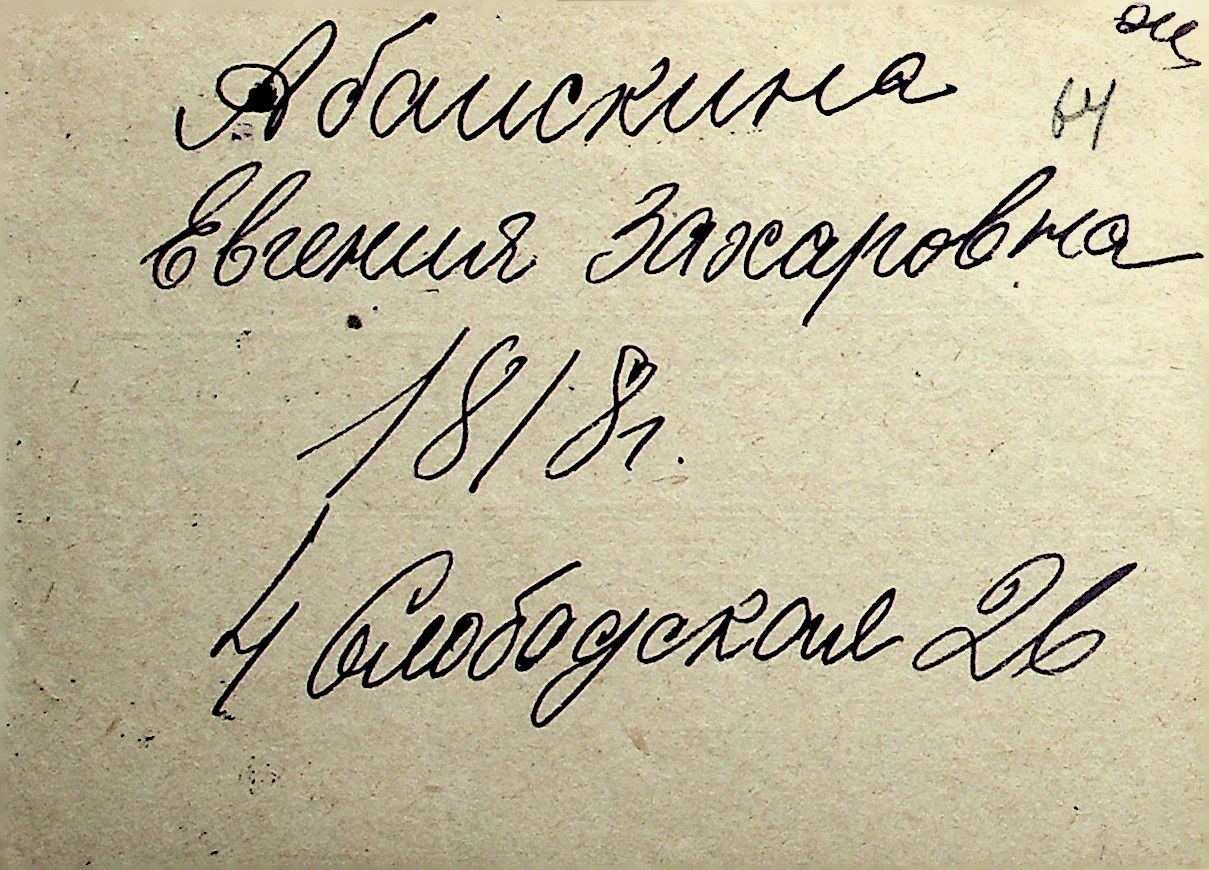 64
Абаискина
Евгения Захаровна
1818г.
4 Слободская 26